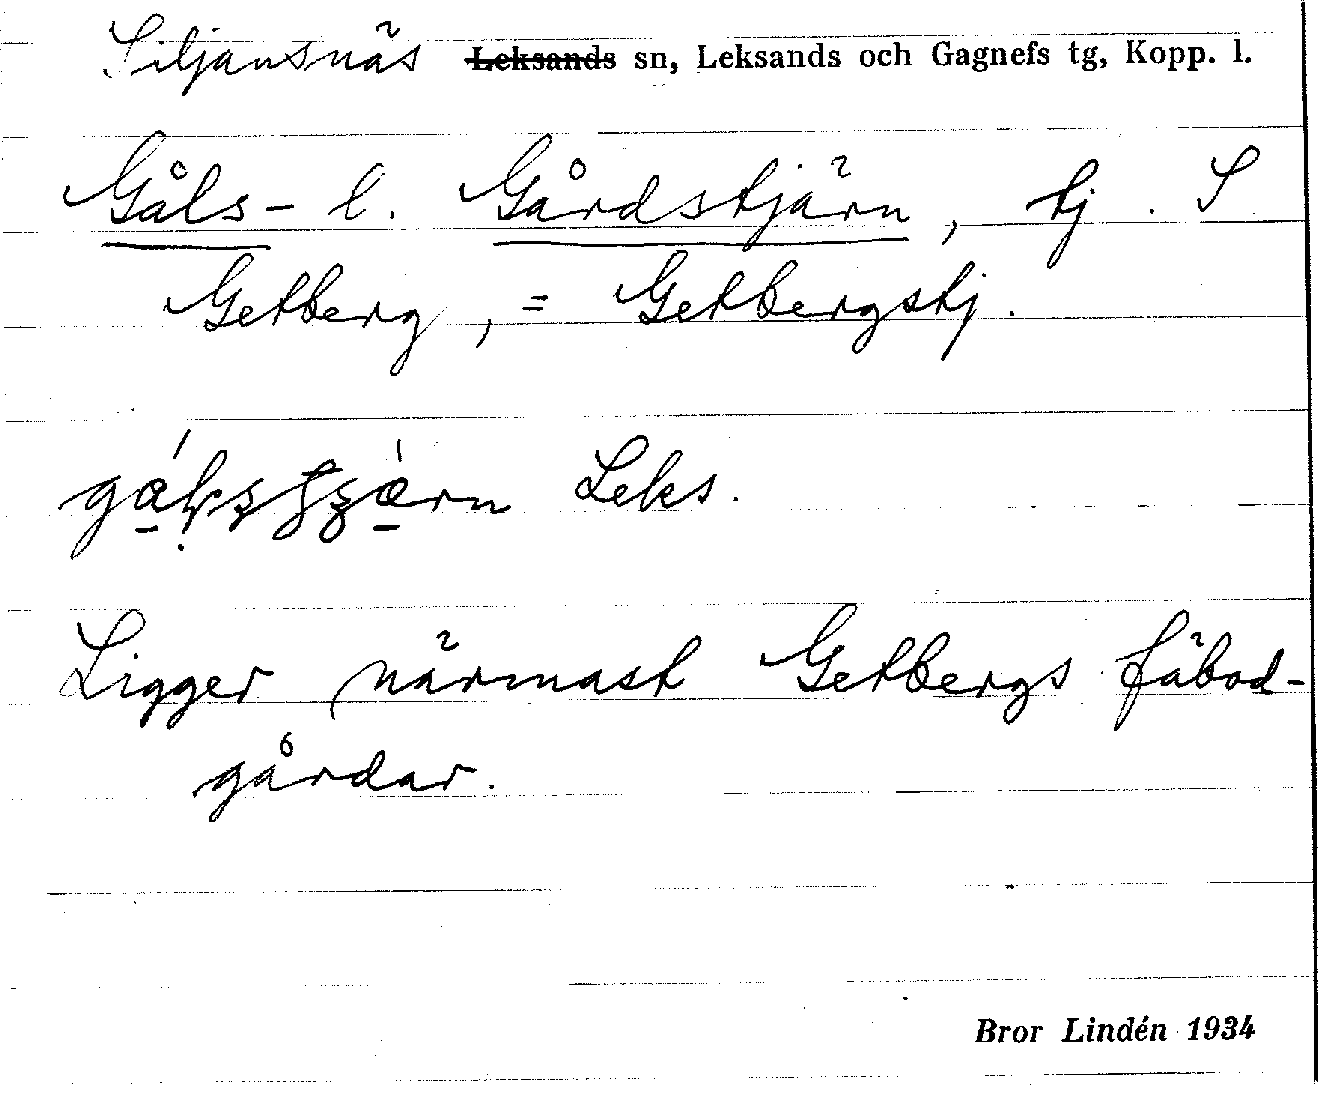 Siljansnäs ~~Leksands~~ sn, Leksands och Gagnefs tg, Kopp. l.
Gåls- l. Gårdstjärn, tj. S
Getberg, = Getbergstj.
Leks.
Ligger närmast Getbergs fäbod-
gårdar.
Bror Lindén 1934